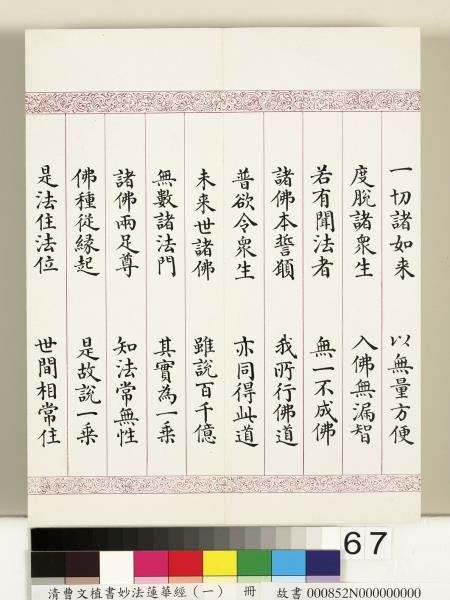 一切諸如来　以無量方便
度脫諸衆生　入佛無漏智
若有聞法者　無一不成佛
諸佛本誓願　我所行佛道
普欲令衆生　亦同得此道
未来世諸佛　雖說百千億
無數諸法門　其實為一乗
諸佛兩足尊　知法常無性
佛種從緣起　是故說一乗
是法住法位　世間相常住
67
清曹文植書妙法蓮華經（一）　冊　故書 000852N000000000